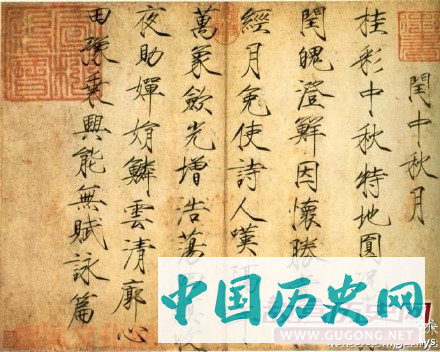 閏中秋月
桂彩中秋特地圓
閏魄澄鮮因懷勝
經月兔使詩人嘆
萬象斂光增浩蕩
夜助嬋娟鱗雲清廓心
田豫乘興能無賦詠篇
中国历史网
WWW.GUGONG.NET